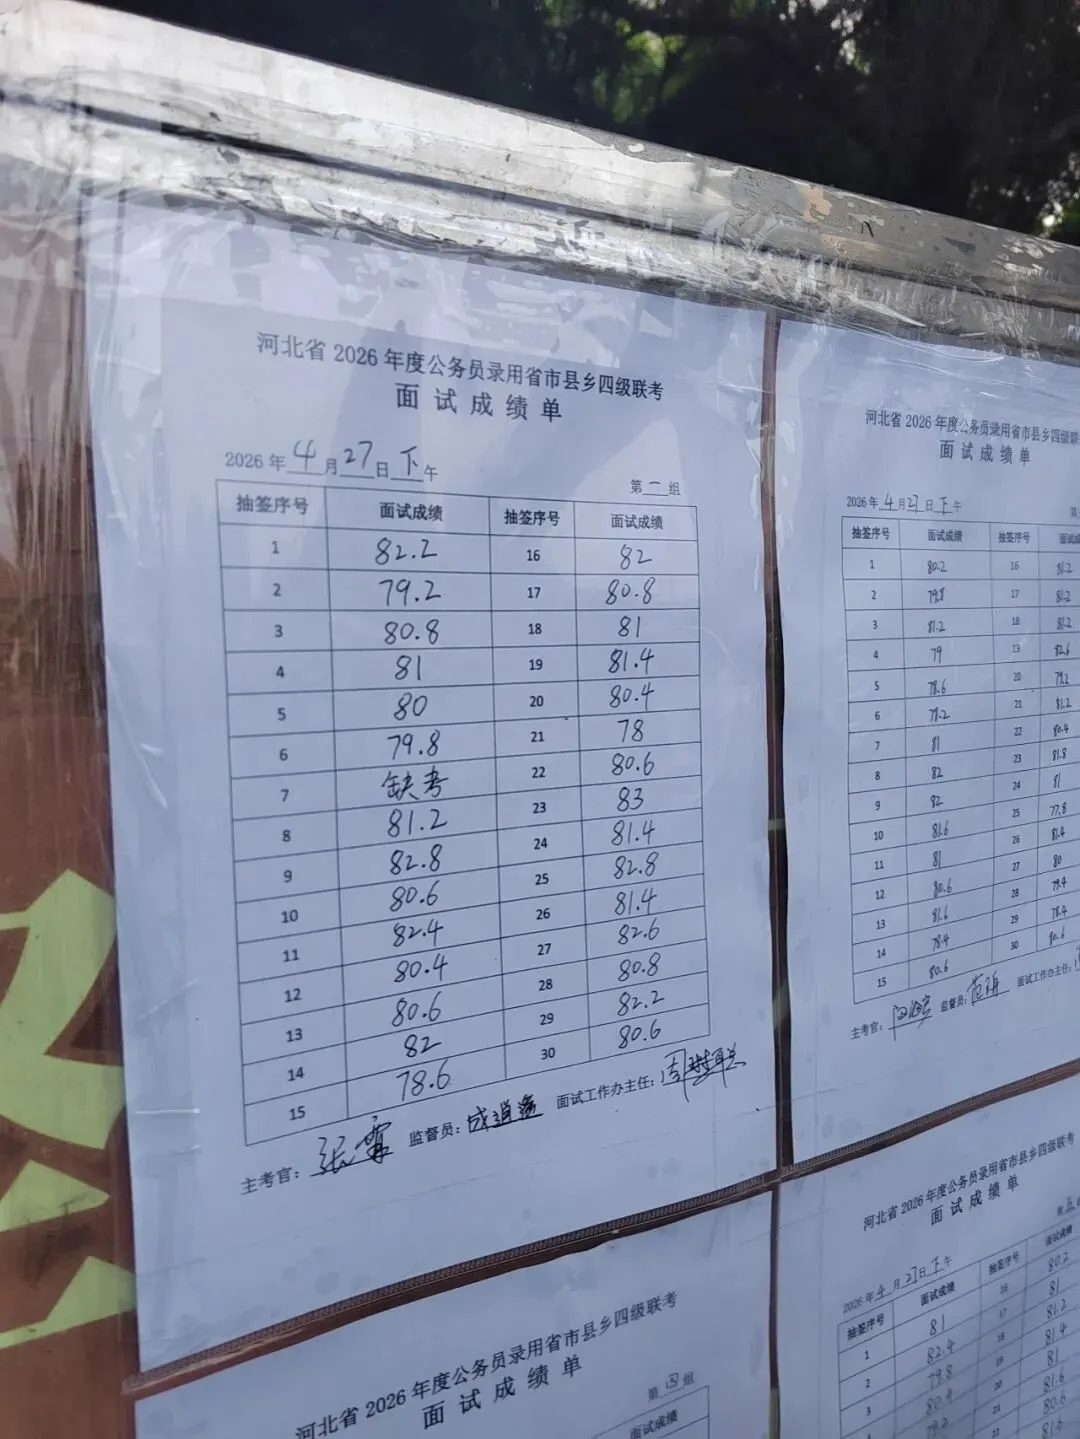 河北省 2026 年度公务员录用省市县乡四级联考
面试成绩单
2026 年 4 月 27 日 下 午
第 一 组
抽签序号 面试成绩 抽签序号 面试成绩
1 82.2 16 82
2 79.2 17 80.8
3 80.8 18 81
4 81 19 81.4
5 80 20 80.4
6 79.8 21 78
7 缺考 22 80.6
8 81.2 23 83
9 82.8 24 81.4
10 80.6 25 82.8
11 82.4 26 81.4
12 80.4 27 82.6
13 80.6 28 80.8
14 82 29 82.2
15 78.6 30 80.6
主考官： 张霄 监督员： 面试工作办主任：
河北省 2026 年度公务员录用省市县乡四级联
面试成绩单
2026 年 4 月 27 日 下 午
第
抽签序号 面试成绩 抽签序号 面试成
1 80.2 16 81.2
2 79.8 17 81.2
3 81.2 18 81.2
4 79 19 82.6
5 78.6 20 79.2
6 78.2 21 81.2
7 81 22 80.4
8 82 23 81.8
9 82 24 81
10 81.6 25 77.8
11 81 26 81.4
12 80.6 27 80
13 81.6 28 79.4
14 78.4 29 78.4
15 80.6 30 80.6
主考官： 监督员： 面试工作办主任：
河北省 2026 年度公务员录用省市县乡四级联考
面试成绩单
第 四 组
面试成绩
河北省 2026 年度公务员录用省市县乡四级联考
面试成绩单
第 五
2026 年 4 月 27 日 下 午
抽签序号 面试成绩 抽签序号 面试成绩
1 81 16 80.2
2 82.4 17 81
3 79.8 18 81.2
80.4 19 81.4
79.2 20 81
21 81.6
22 80.6
81.6